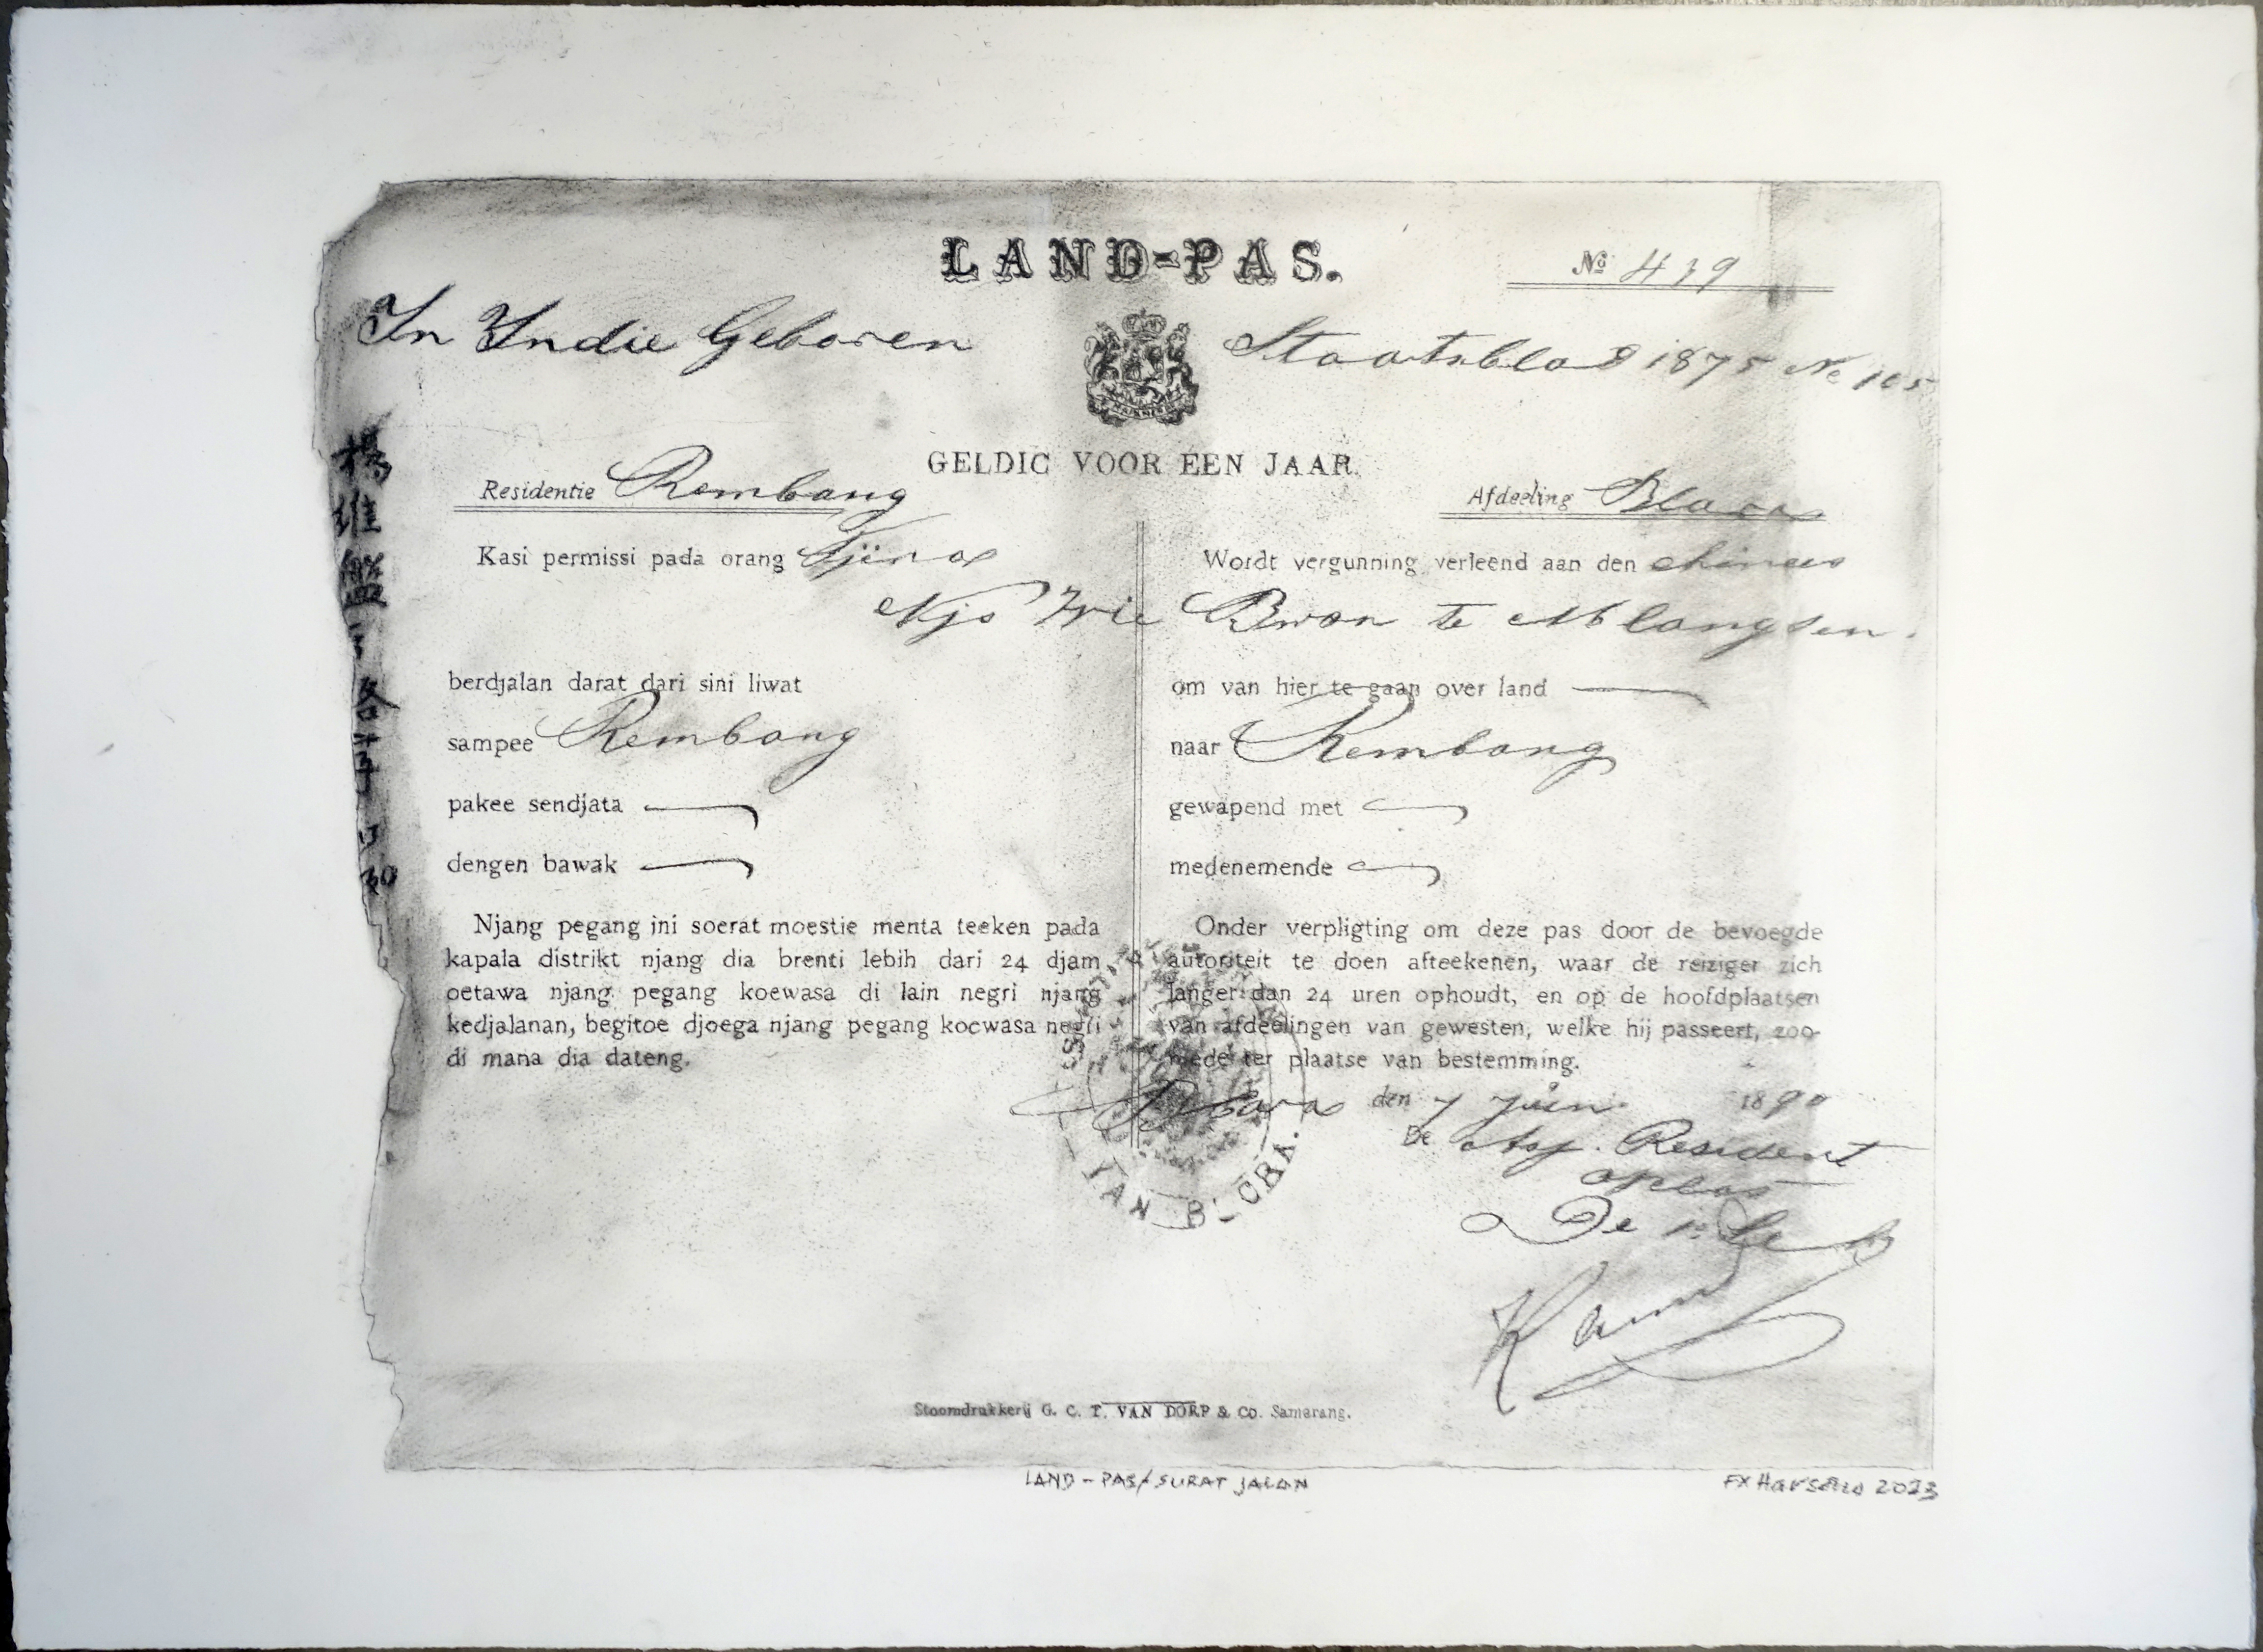 LAND-PAS.
No 439
In Indie Geboren
Staatsblad 1875 No 105
GELDIG VOOR EEN JAAR.
Residentie Rembang
Afdeeling Blora
Kasi permissi pada orang Tjina
Wordt vergunning verleend aan den chinees
Njo Swie Bwan te Ngblangsen
berdjalan darat dari sini liwat
sampee Rembang
pakee sendjata
dengen bawak
Njang pegang ini soerat moestie menta teeken pada
kapala distrikt njang dia brenti lebih dari 24 djam
oetawa njang pegang koewasa di lain negri njang
kedjalanan, begitoe djoega njang pegang koewasa negri
di mana dia dateng.
om van hier te gaan over land
naar Rembang
gewapend met
medenemende
Onder verpligting om deze pas door de bevoegde
autoriteit te doen afteekenen, waar de reiziger zich
langer dan 24 uren ophoudt, en op de hoofdplaatsen
van afdeelingen van gewesten, welke hij passeert, zoo-
mede ter plaatse van bestemming.
Blora den 7 Juni 1890
De Ass. Resident
De 1e
VAN BLORA.
Stoomdrukkerij G. C. T. VAN DORP & Co. Samarang.
LAND-PAS/SURAT JALAN
FX Harsono 2023